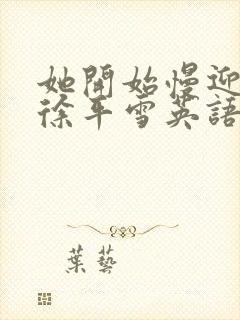 她開始慢迎
徐平雪英語
葉藝